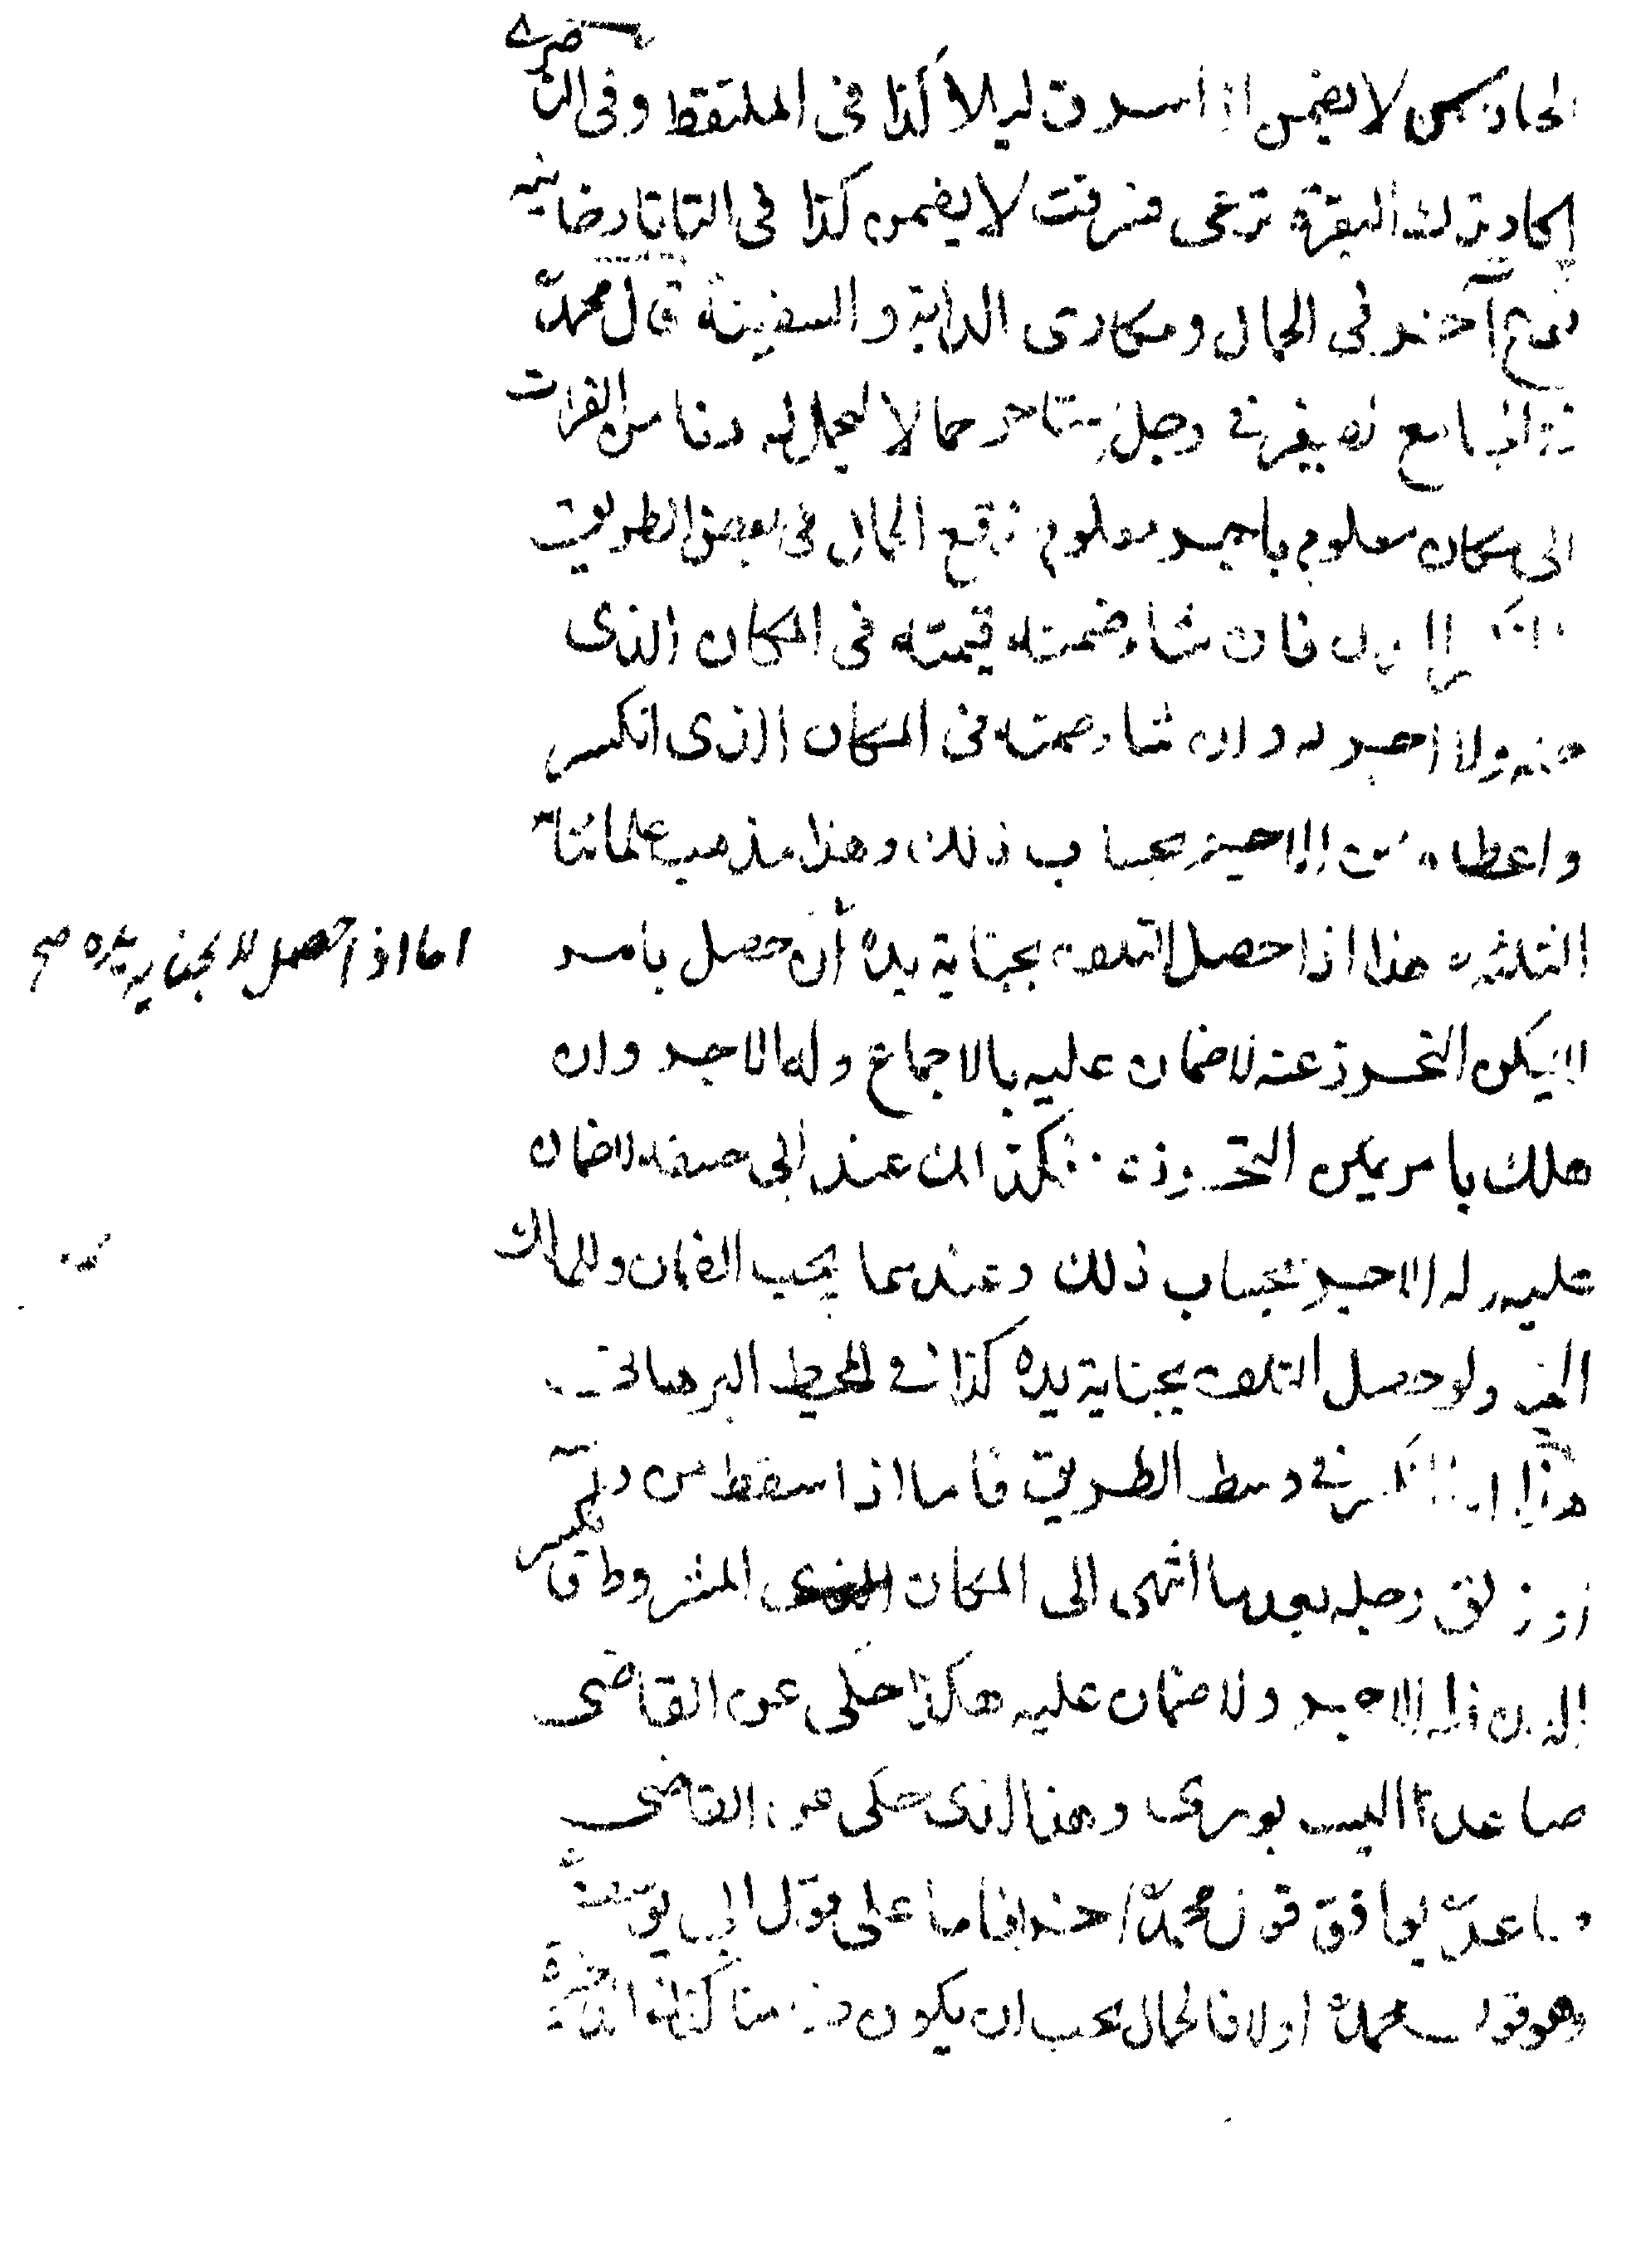 الحارس لا يضمن اذا سرق ليلا كذا فى الملتقط وفى الناصرى
المكارى ترك البقرة ترعى فسرقت لا يضمن كذا فى التاتارخانيه
نوع آخر فى الحمال ومكارى الدابة والسفينة قال محمد
فى الجامع الصغير فى رجل يستاجر حمالا ليحمل له دنا من الفرات
الى مكان معلوم باجر معلوم فوقع الحمال فى بعض الطريق
فان شاء ضمنه قيمته فى المكان الذى
منه ولا اجر له وان شاء ضمنه فى المكان الذى انكسر
واعطاه من الاجر بحساب ذلك وهذا مذهب علمائنا
الثلثه هذا اذا حصل التلف بجناية يده ان حصل بامر
اما اذا حصل لا بجناية يده صح
لا يمكن التحرز عنه لا ضمان عليه بالاجماع وله الاجر وان
هلك بامر يمكن التحرز عنه فكذالك عند ابى حنيفه لا ضمان
عليه وله الاجر بحساب ذلك وعندهما يجب الضمان وللمالك
الخيار ولو حصل التلف بجناية يده كذا فى المحيط البرهانى
هذا اذا انكسر فى وسط الطريق فاما اذا سقط من راسه
او زلق رجله بعد ما انتهى الى المكان المشروط فانكسر
الدن فله الاجر ولا ضمان عليه هكذا حكى عن القاضى
صاعد النيسابورى وهذا الذى حكى عن القاضى
صاعد يوافق قول محمد اخرا فاما على قول ابى يوسف
وهو قول محمد اولا فالحمال يجب ان يكون ضامنا كذا فى الذخيرة